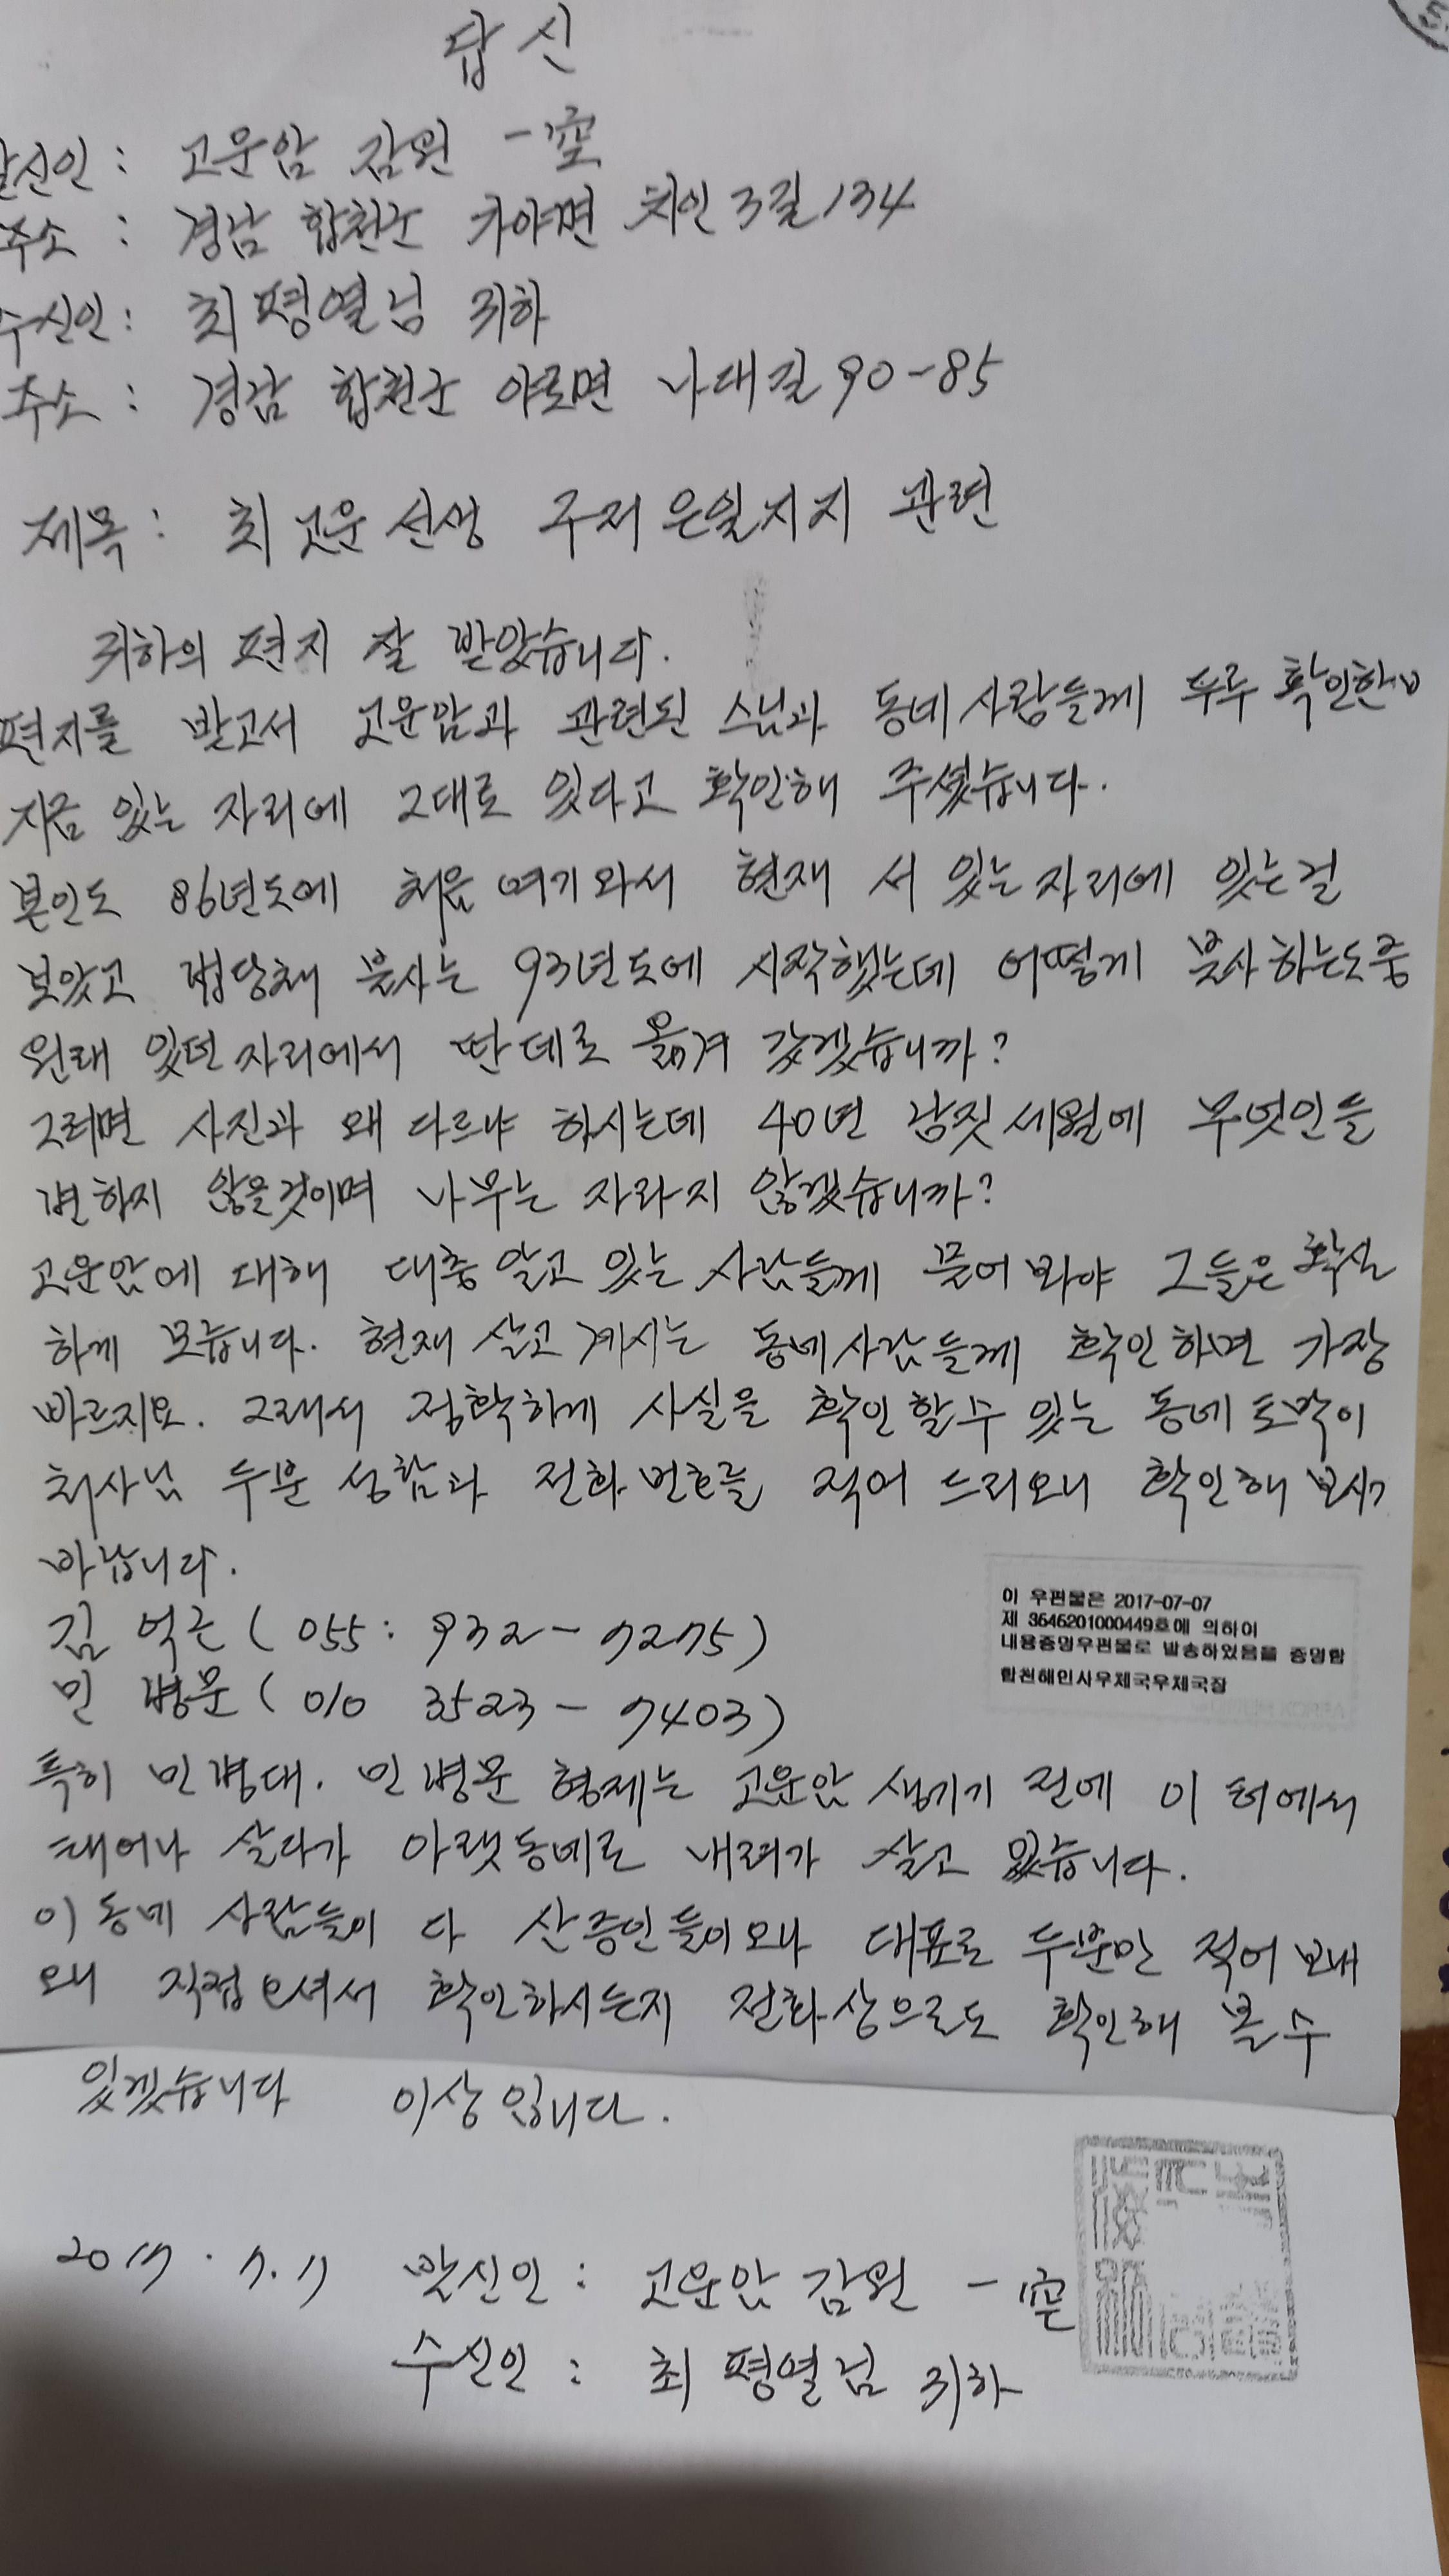 답신
발신인 : 고운암 감원 一空
주소 : 경남 합천군 가야면 치인3길 134
수신인 : 최평열님 귀하
주소 : 경남 합천군 야로면 나대길 90-85
제목 : 최고운 선생 구저은일지지 관련
귀하의 편지 잘 받았습니다.
편지를 받고서 고운암과 관련된 스님과 동네사람들께 두루 확인한바
지금 있는 자리에 그대로 있다고 확인해 주셨습니다.
본인도 86년도에 처음 여기와서 현재 서 있는 자리에 있는걸
보았고 법당채 불사는 93년도에 시작했는데 어떻게 불사하는도중
원래 있던 자리에서 딴데로 옮겨 갔겠습니까?
그러면 사진과 왜 다르냐 하시는데 40년 남짓 세월에 무엇인들
변하지 않을것이며 나무는 자라지 않겠습니까?
고운암에 대해 대충 알고 있는 사람들께 물어봐야 그들은 확실
하게 모릅니다. 현재 살고 계시는 동네사람들께 확인하면 가장
빠르지요. 그래서 정확하게 사실을 확인할수 있는 동네 토박이
처사님 두분 성함과 전화번호를 적어 드리오니 확인해 보시기
바랍니다.
김 억근 ( 055 : 932 - 7275 )
민 병문 ( 010 3523 - 7403 )
이 우편물은 2017-07-07
제 3646201000449호에 의하여
내용증명우편물로 발송하였음을 증명함
합천해인사우체국우체국장
특히 민병대. 민병문 형제는 고운암 생기기 전에 이 터에서
태어나 살다가 아랫동네로 내려가 살고 있습니다.
이 동네 사람들이 다 산증인들이오나 대표로 두분만 적어 보내
오니 직접 오셔서 확인하시는지 전화상으로도 확인해 볼 수
있겠습니다 이상입니다.
2017. 7. 7 발신인 : 고운암 감원 一空
수신인 : 최평열님 귀하